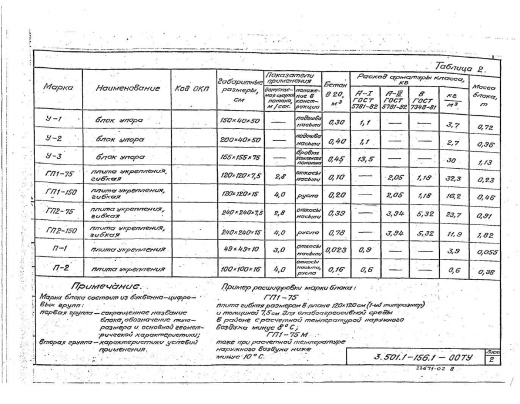 Таблица 2.
Марка Наименование Код ОКП Габаритные размеры, см Показатели применения Бетон В 20, м³ Расход арматуры класса, кг Масса блока, т
А-I ГОСТ 5781-82 А-III ГОСТ 5781-82 В ГОСТ 7348-81 кг/м³
У-1 блок упора 150×40×50 — подошва насыпи 0,30 1,1 — — 3,7 0,72
У-2 блок упора 200×40×50 — подошва насыпи 0,40 1,1 — — 2,7 0,96
У-3 блок упора 155×155×75 — 0,45 13,5 — — 30 1,13
ГП1-75 плита укрепления, гибкая 120×120×7,5 2,8 откосы насыпи 0,10 — 2,05 1,18 32,3 0,23
ГП1-150 плита укрепления, гибкая 120×120×15 4,0 русла 0,20 — 2,05 1,18 16,2 0,46
ГП2-75 плита укрепления, гибкая 240×240×7,5 2,8 откосы насыпи 0,39 — 3,94 5,32 23,7 0,91
ГП2-150 плита укрепления, гибкая 240×240×15 4,0 русла 0,78 — 3,94 5,32 11,9 1,82
П-1 плита укрепления 49×49×10 3,0 откосы насыпи 0,023 0,9 — — 3,9 0,055
П-2 плита укрепления 100×100×16 4,0 откосы насыпи, русла 0,16 0,6 — — 0,6 0,38
Примечание.
Марка блока состоит из буквенно-цифровых групп:
первая группа – сокращенное название
блока, обозначение типоразмера
и основной геометрической характеристики;
вторая группа – характеристики условий
применения.
Пример расшифровки марки блока:
ГП1-75
плита гибкая размером в плане 120×120 см (1-ый типоразмер)
и толщиной 7,5 см для слабоагрессивной среды
в районе с расчетной температурой наружного
воздуха минус
ГП1-75 М
тоже при расчетной температуре
наружного воздуха ниже
минус 10°С.
3.501.1-156.1 - 00ТУ
Лист 2
23671-02 8